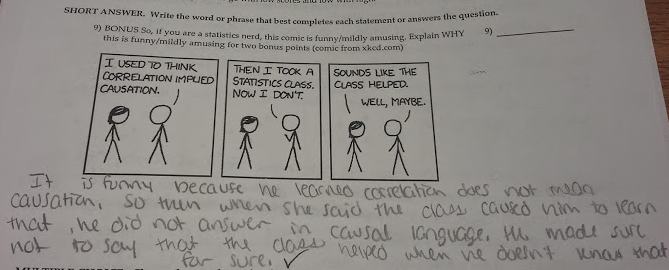 SHORT ANSWER. Write the word or phrase that best completes each statement or answers the question.
9) BONUS So, if you are a statistics nerd, this comic is funny/mildly amusing. Explain WHY
this is funny/mildly amusing for two bonus points (comic from xkcd.com)
9)
I USED TO THINK
CORRELATION IMPLIED
CAUSATION.
THEN I TOOK A
STATISTICS CLASS.
NOW I DON'T.
SOUNDS LIKE THE
CLASS HELPED.
WELL, MAYBE.
It is funny because he learned correlation does not mean
causation, so then when she said the class caused him to learn
that, he did not answer in causal language. He made sure
not to say that the class helped when he doesn't know that
for sure. ✓